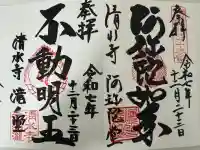 奉拝
令和七年
十二月二十三日
阿弥陀如来
清水寺 阿弥陀堂
奉拝
令和七年
十二月二十三日
不動明王
清水寺